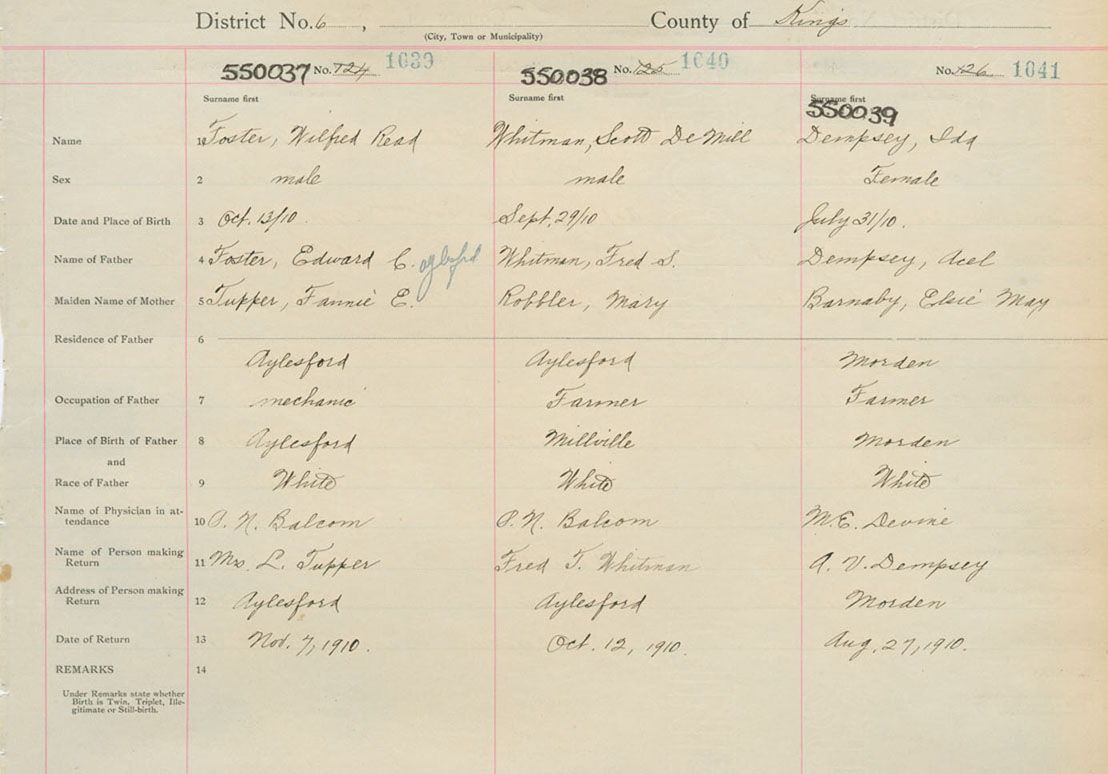 District No. 6 , County of Kings
(City, Town or Municipality)
550037 No. 124 1039 550038 No. 125 1040 No. 126 1041
Surname first Surname first Surname first
550039
Name 1 Foster, Wilfred Read Whitman, Scott DeMill Dempsey, Ida
Sex 2 male male Female
Date and Place of Birth 3 Oct. 13/10. Sept, 29/10 July 31/10.
Name of Father 4 Foster, Edward C. aylesfrd Whitman, Fred S. Dempsey, Acel
Maiden Name of Mother 5 Tupper, Fannie E. Robbler, Mary Barnaby, Elsie May
Residence of Father 6
Aylesford Aylesford Morden
Occupation of Father 7 mechanic Farmer Farmer
Place of Birth of Father 8 Aylesford Millville Morden
and
Race of Father 9 White White White
Name of Physician in at-
tendance 10 P. N. Balcom P. N. Balcom M.E. Devine
Name of Person making
Return 11 Mrs. L. Tupper Fred T. Whitman A. V. Dempsey
Address of Person making
Return 12 Aylesford Aylesford Morden
Date of Return 13 Nov. 7, 1910. Oct. 12, 1910. Aug. 27, 1910.
REMARKS 14
Under Remarks state whether
Birth is Twin, Triplet, Ille-
gitimate or Still-birth.